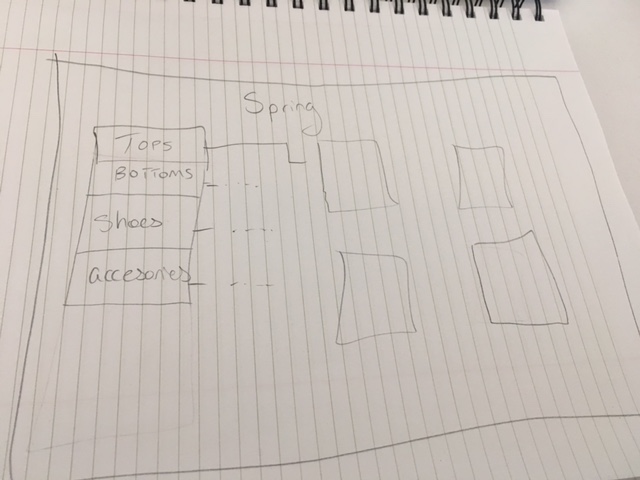 Spring
TOPS
BOTTOMS
Shoes
accesories